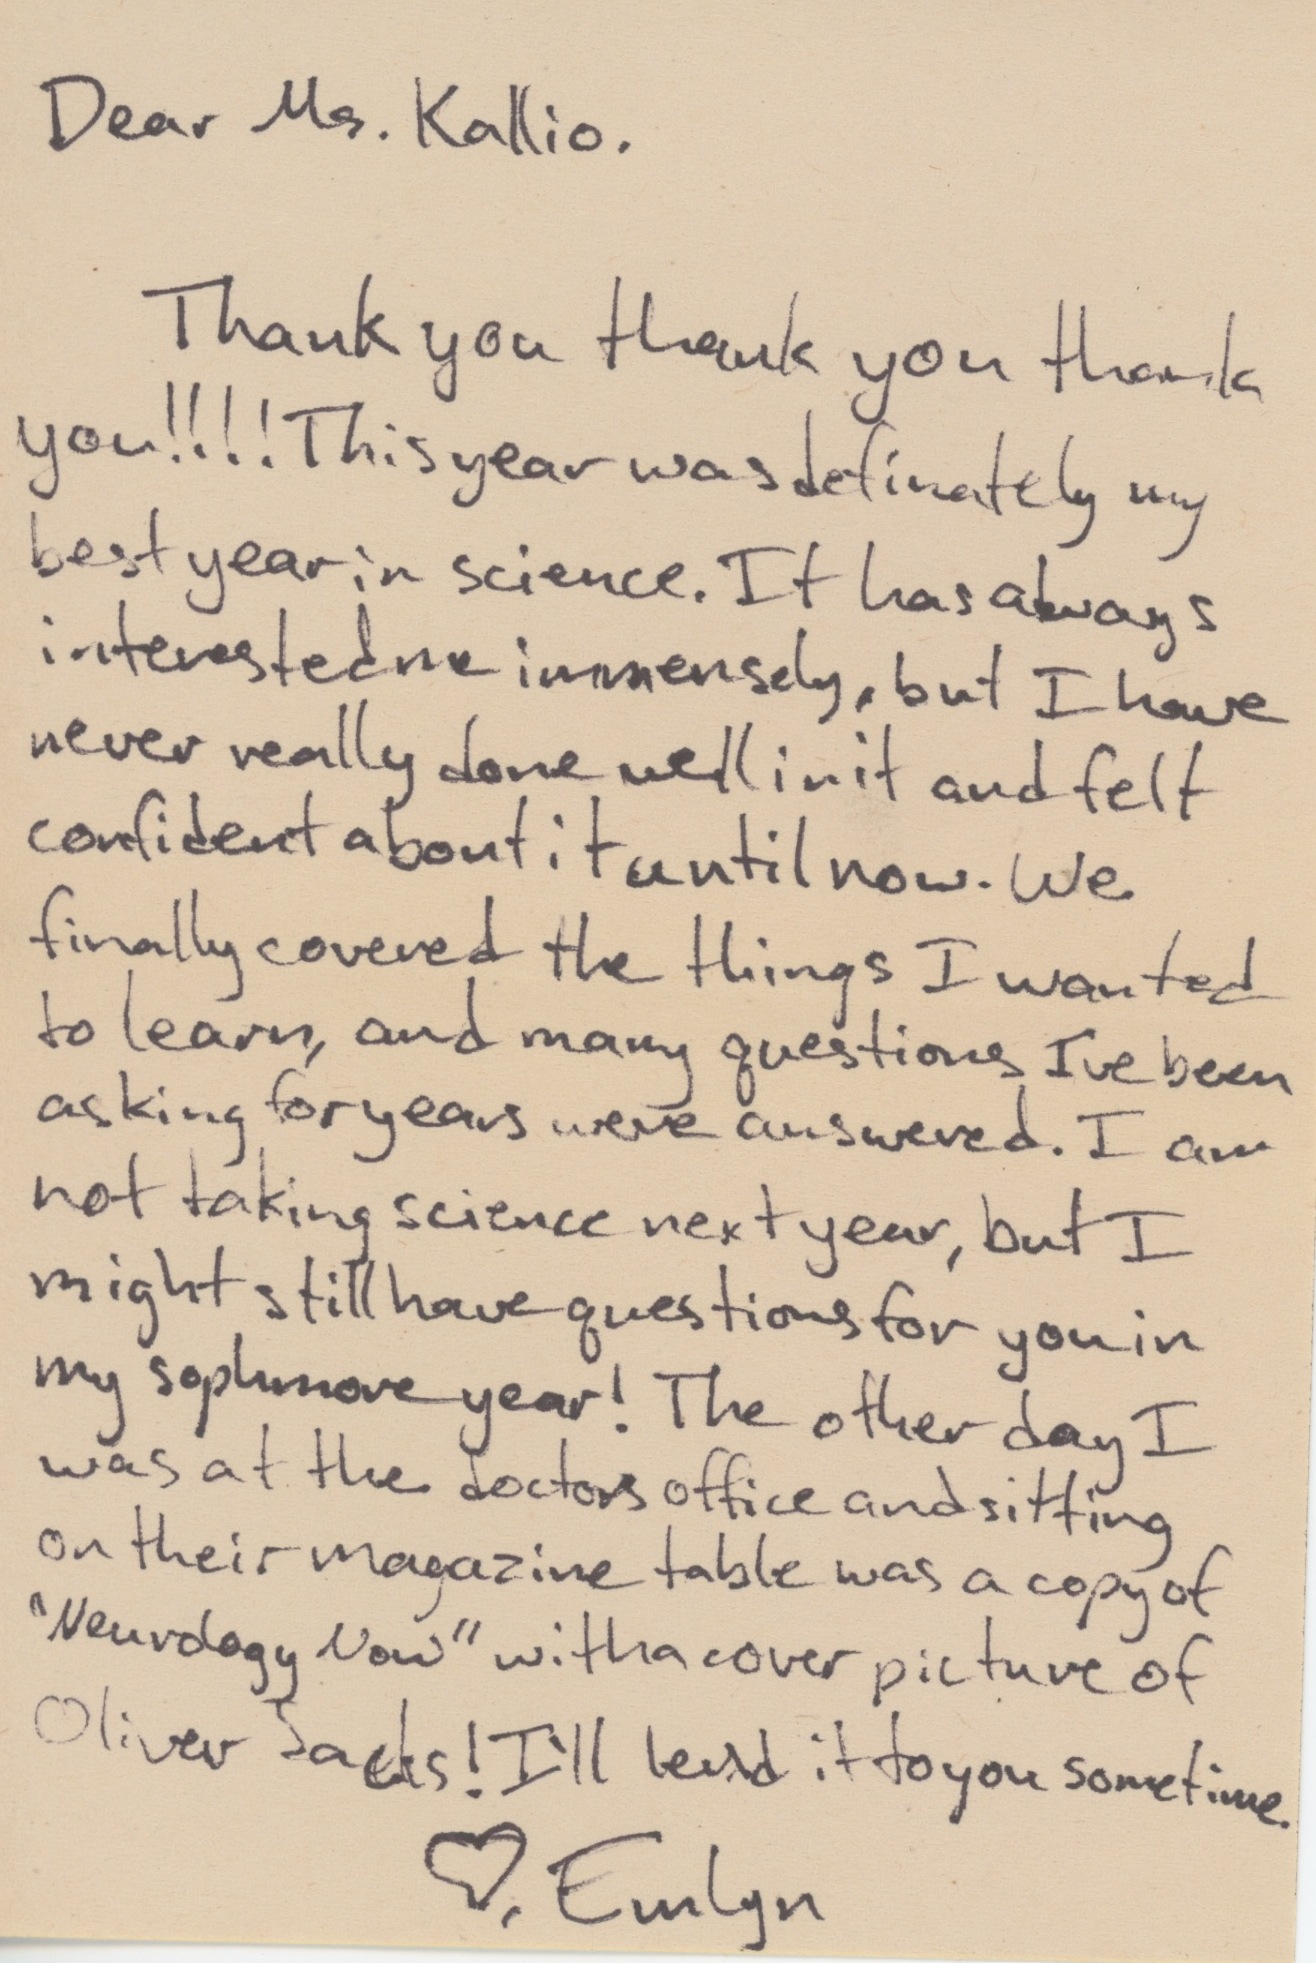 Dear Ms. Kallio.
Thank you thank you thank
you!!!! This year was definately my
best year in science. It has always
interested me immensely, but I have
never really done well in it and felt
confident about it until now. We
finally covered the things I wanted
to learn, and many questions I've been
asking for years were answered. I am
not taking science next year, but I
might still have questions for you in
my sophmore year! The other day I
was at the doctors office and sitting
on their magazine table was a copy of
"Neurology Now" with a cover picture of
Oliver Sacks! I'll lend it to you sometime.
♡, Emlyn